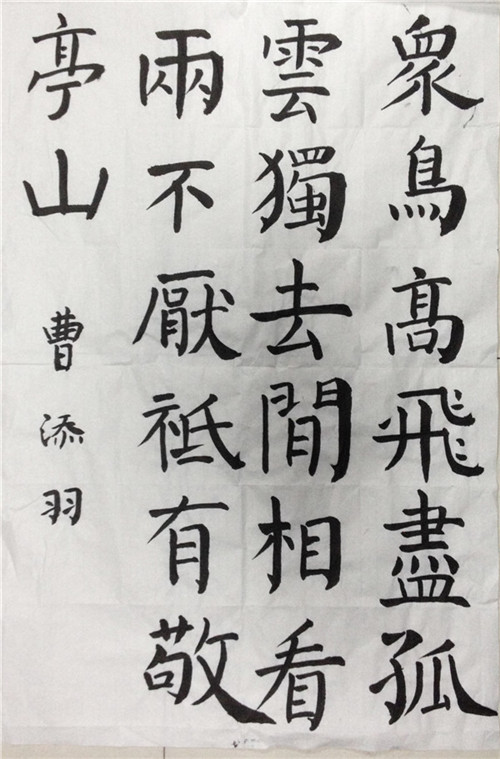 眾鳥高飛盡孤
雲獨去閒相看
兩不厭祗有敬
亭山
曹添羽